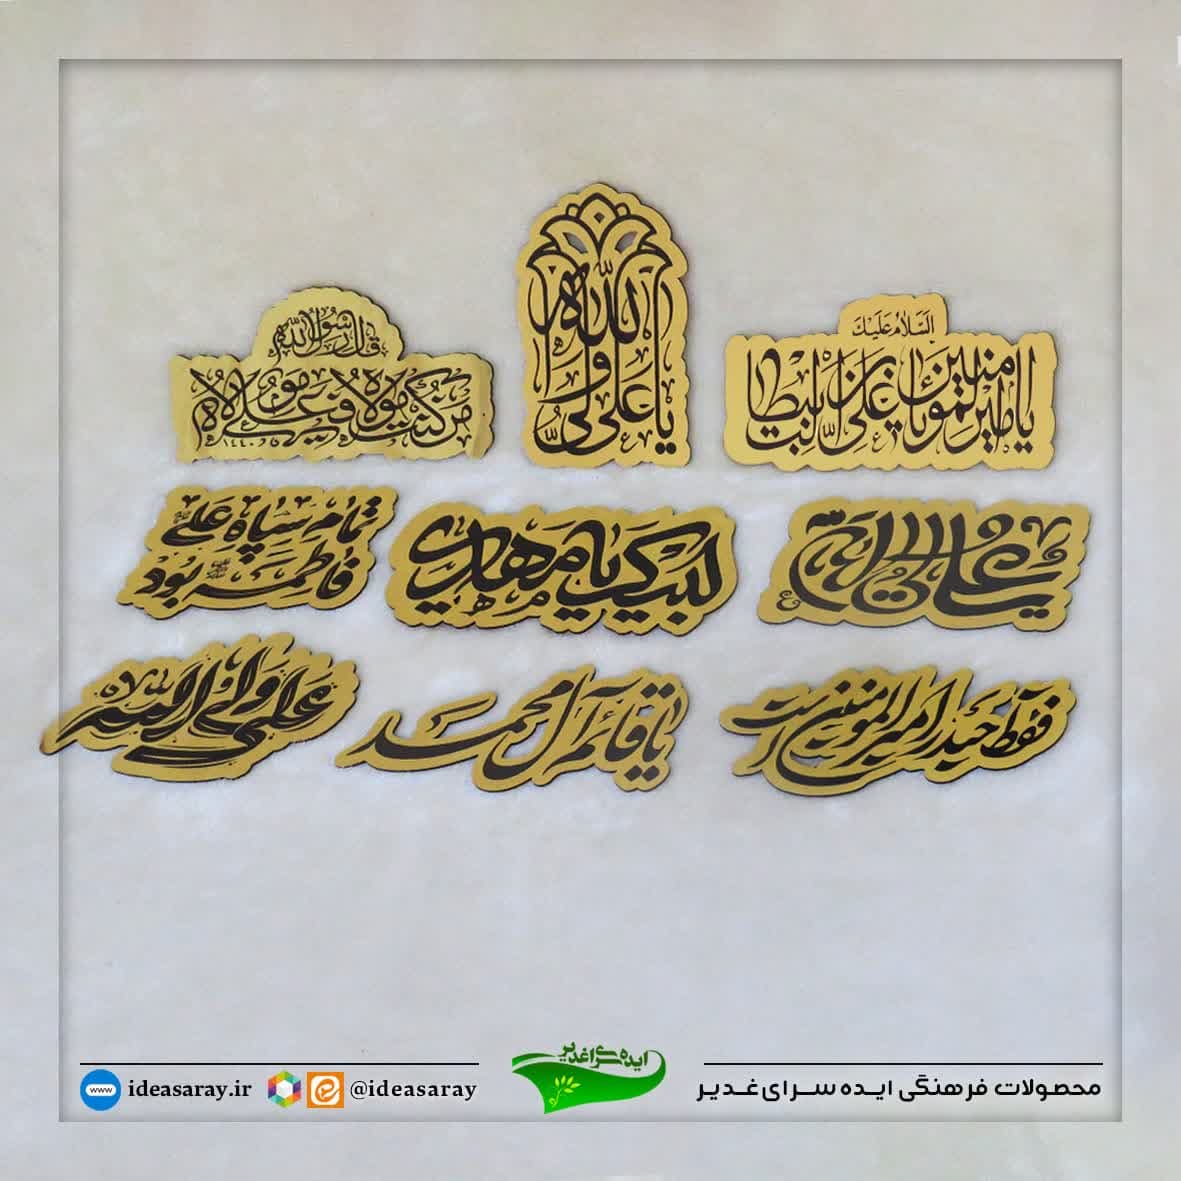 السلام علیک
یا امیرالمؤمنین یا علی بن ابی طالب
یا علی ولی الله
قال رسول الله
من کنت مولاه فهذا علی مولاه
لبیک یا مهدی
تمام سپاه علی
فاطمه بود
فقط حیدر امیرالمؤمنین است
یا قائم آل محمد
علی ولی الله
ایده سرای غدیر
محصولات فرهنگی ایده سرای غدیر
@ideasaray
www
ideasaray.ir